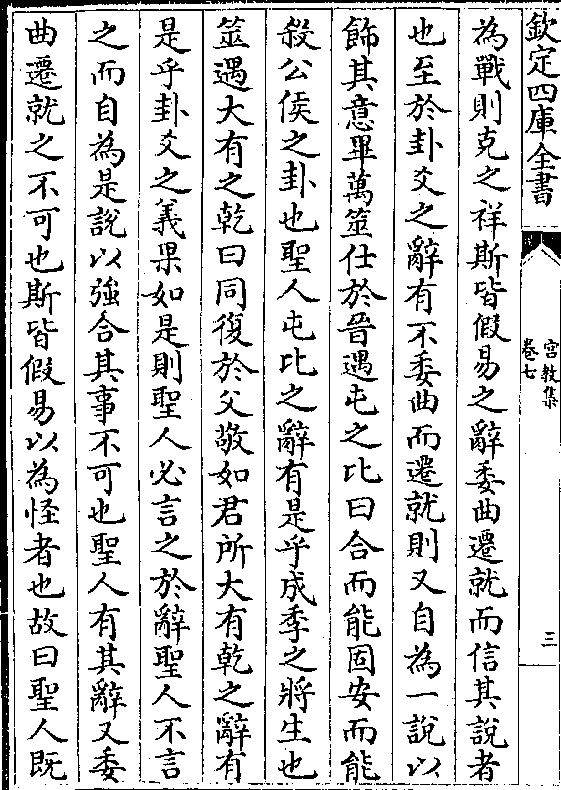 欽定四庫全書
宫教集
卷七
三
為戰則克之祥斯皆假易之辭委曲遷就而信其說者
也至於卦爻之辭有不委曲而遷就則又自為一說以
飾其意畢萬筮仕於晉遇屯之比曰合而能固安而能
殺公侯之卦也聖人屯比之辭有是乎成季之將生也
筮遇大有之乾曰同復於父敬如君所大有乾之辭有
是乎卦爻之義果如是則聖人必言之於辭聖人不言
之而自為是說以強合其事不可也聖人有其辭又委
曲遷就之不可也斯皆假易以為怪者也故曰聖人既